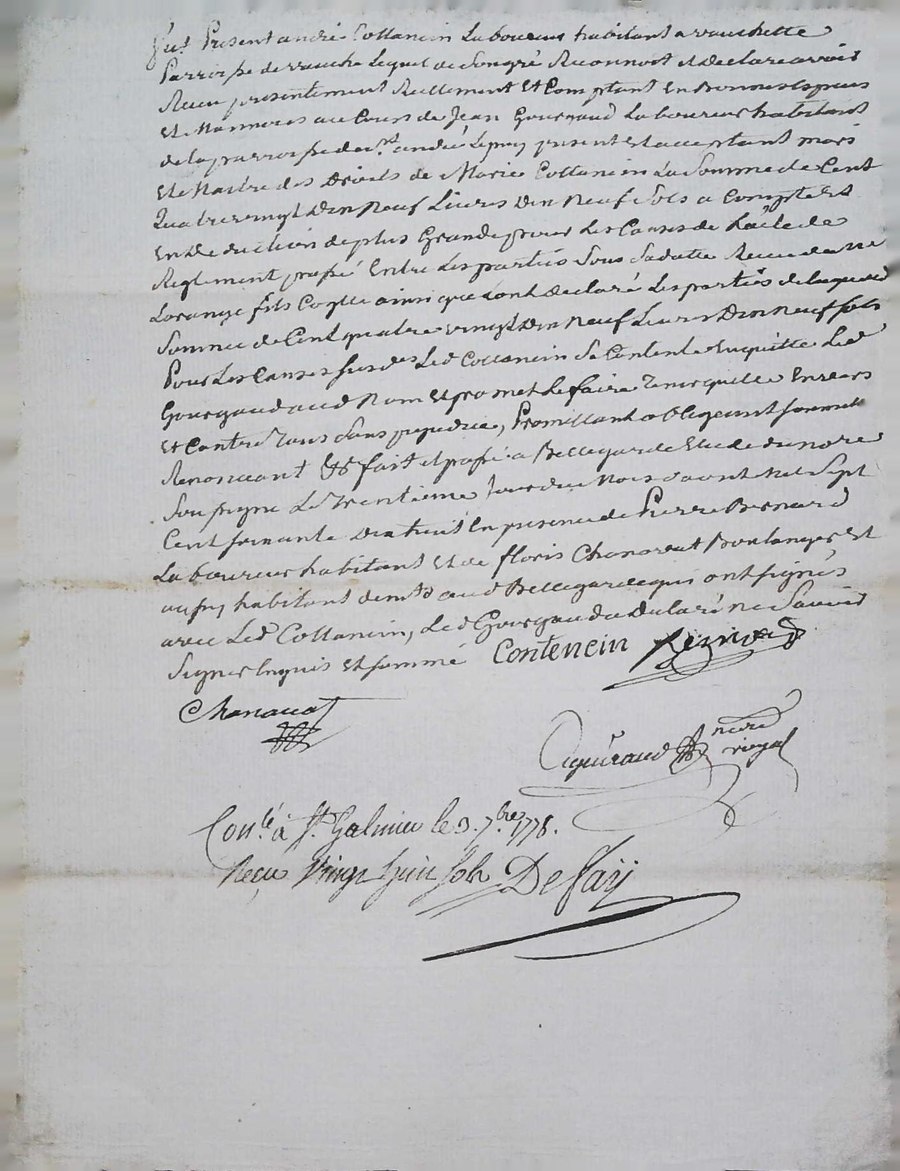 fut Present andré Collancin Laboureur habitant a vauchette
Parroisse de vauche Lequel de Songré Reconnoit et declare avoir
Recu presentement Reellement Et Comptant En bonnes Espeses
Et Monnoies au Cours de Jean Gourgaud Laboureur habitant
de la parroisse de st andré Lepuy present Et acceptant mari
Et Maitre des Droits de Marie Collancin La Somme de Cent
Quatre vingt Dix Neuf Livres Dix Neuf Sols a Compte Et
En deduction de plus Grande pour Les Causes de L'acte de
Reglement passé Entre Les parties Sous Sa datte Recu de me
Lorange fils Cogtte ainsi que Lont declaré Les parties de laquelle
Somme de Cent quatre vingt Dix Neuf Livres Dix Neuf Sols
Pour Les Causes susdes Led Collancin Se Contente Enquitte Led
Gourgaud aud Nom Et promet Le faire Tenir quitte Envers
Et Contre Tous Sans prejudice, Promettant obligeant soumet
Renoncant &c fait et passé a Bellegarde Etude du nore
Soussigné Le Trentieme Jour du Mois d'aout Mil Sept
Cent soixante Dix huit En presence de Pierre Bernard
Laboureur habitant Et de floris Chanavat Boulanger Et
habitant aud Bellegarde qui ont signés
avec Led Collancin, Led Gourgaud a declaré ne Savoir
Signer Enquis Et sommé Contencin Bernard
Chanavat
nore
Aguiraud royal
Conlé à St Galmier le 3. 7bre 1778.
Reçu vingt huit sols De faÿ